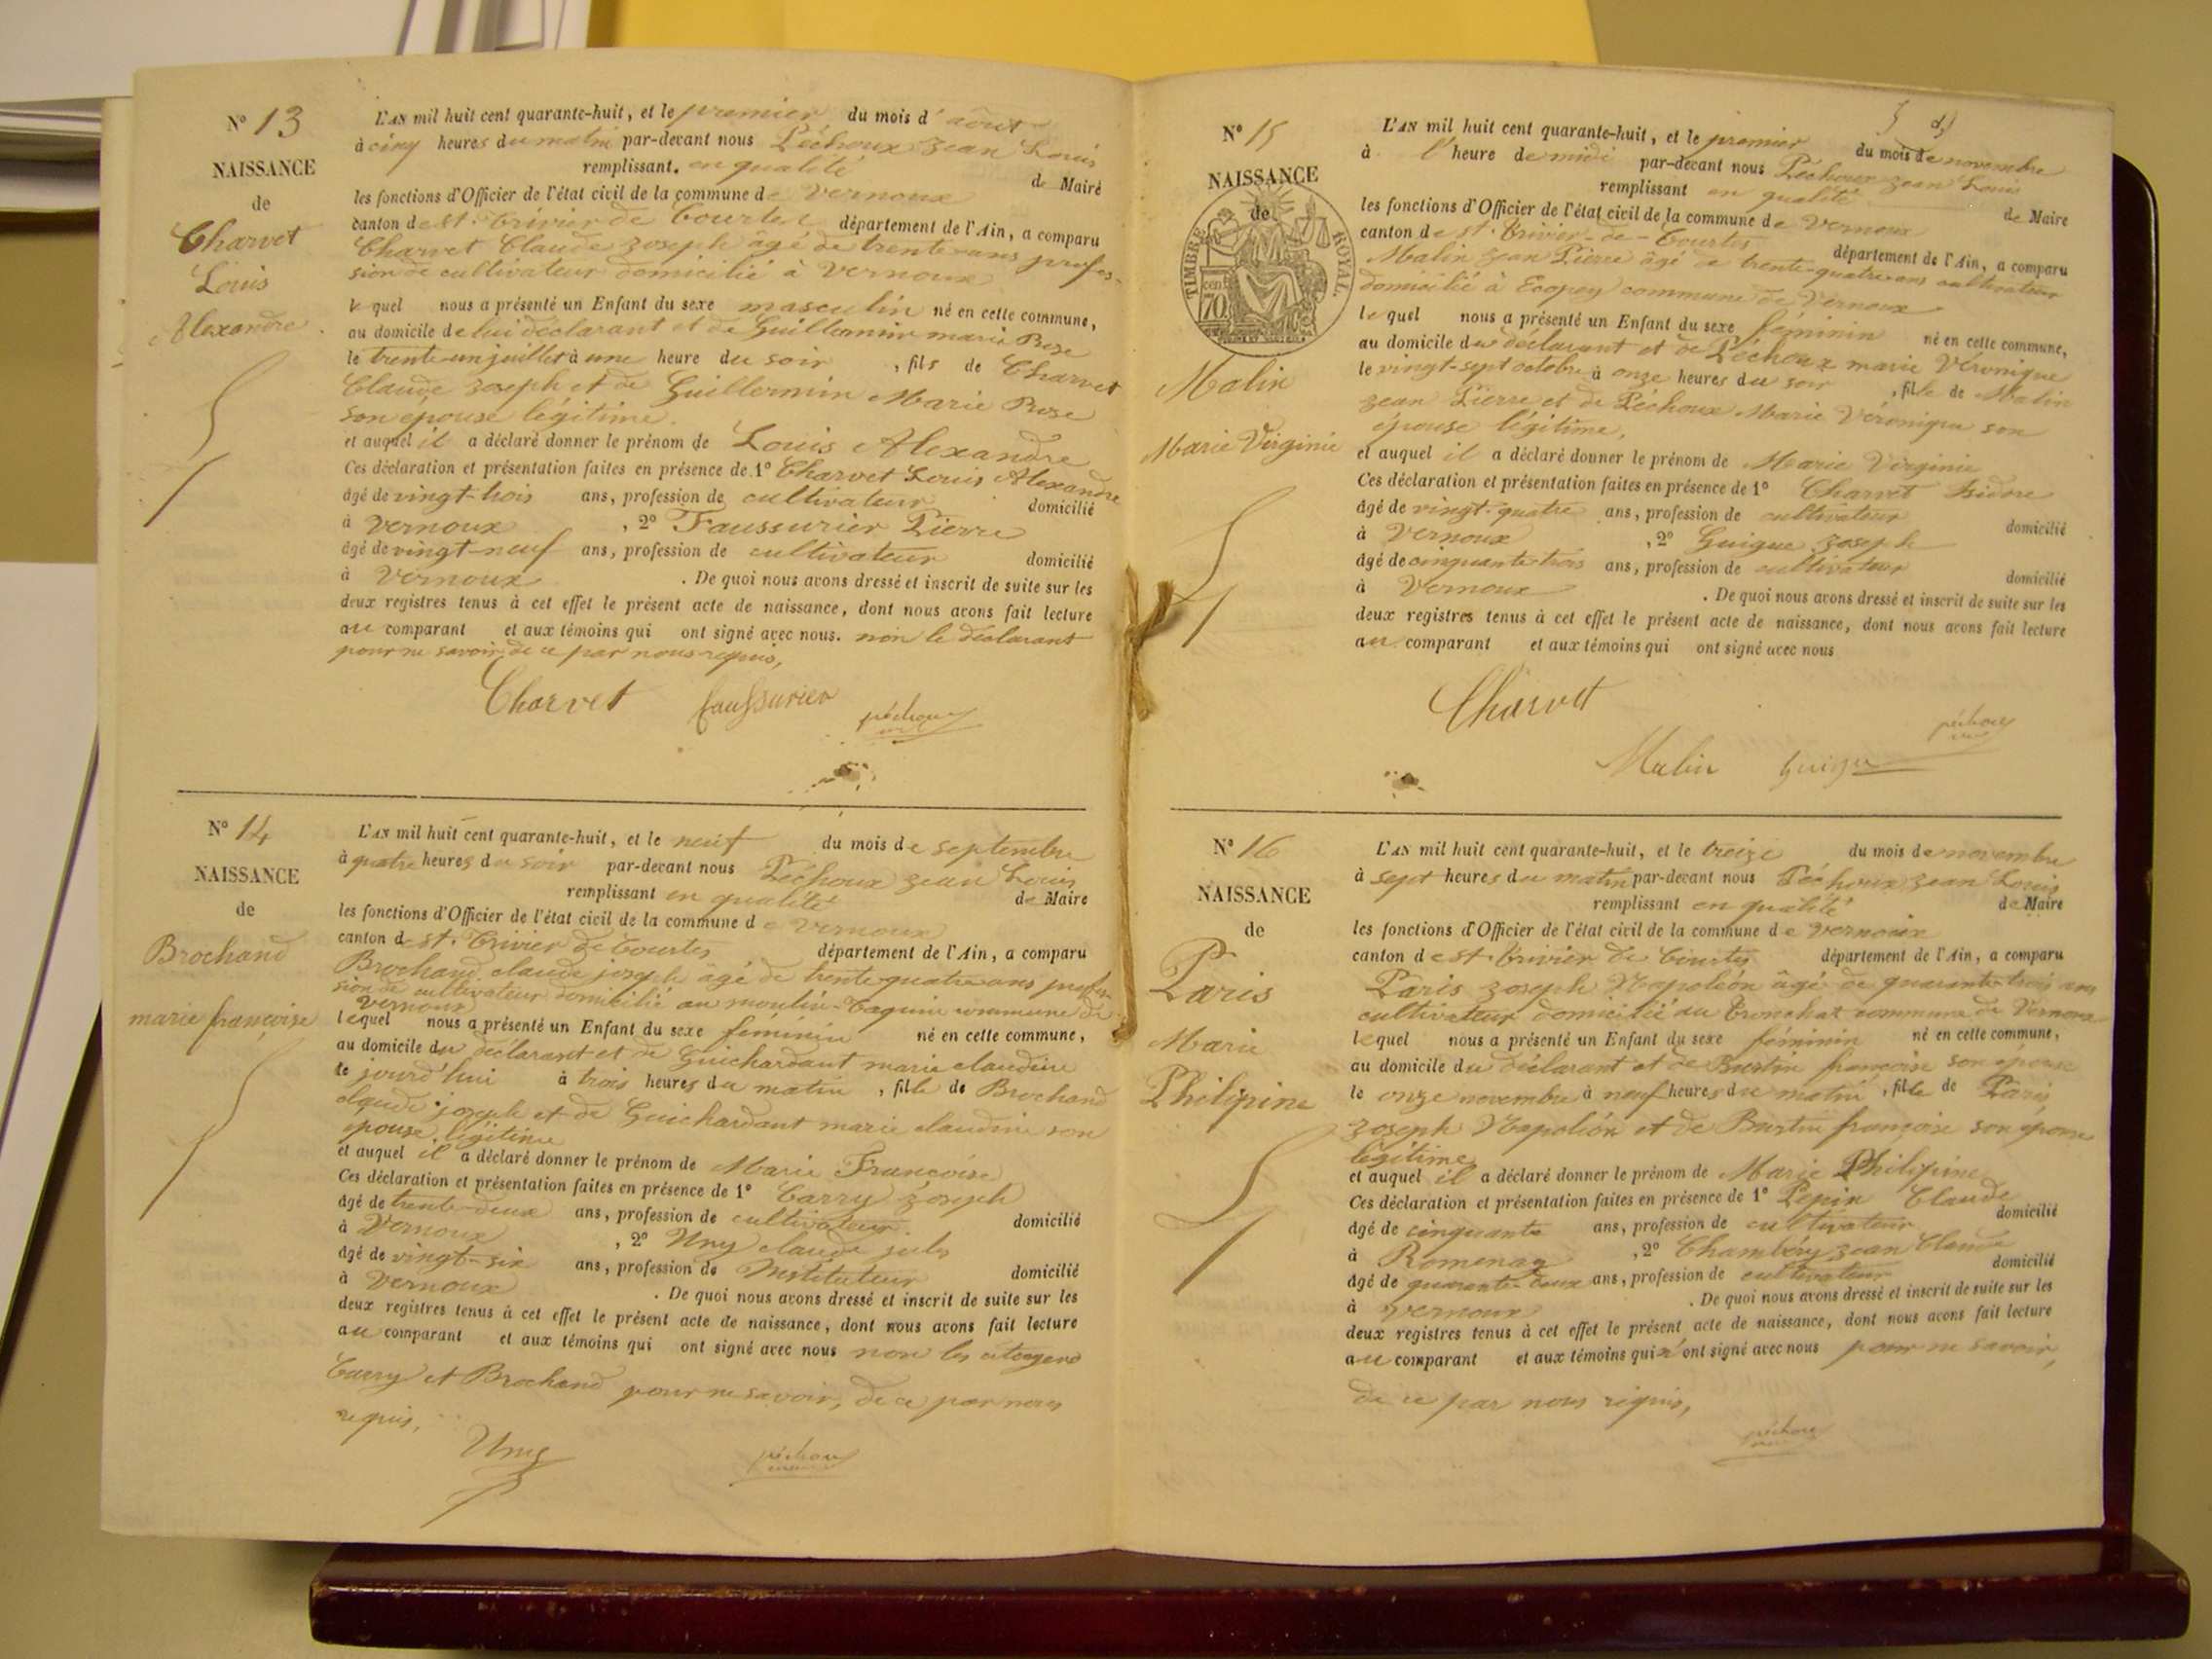 N° 13
NAISSANCE
de
Charvet
Louis
Alexandre
L'AN mil huit cent quarante-huit, et le premier du mois d'août
à cinq heures du matin par-devant nous Péchoux Jean Louis
remplissant en qualité de Maire
les fonctions d'Officier de l'état civil de la commune de Vernoux
canton de St. Trivier de Courtes département de l'Ain, a comparu
Charvet Claude Joseph âgé de trente ans profes-
sion de cultivateur domicilié à Vernoux
lequel nous a présenté un Enfant du sexe masculin né en cette commune,
au domicile de lui déclarant et de Guillermin marie Rose
le trente-un juillet à une heure du soir, fils de Charvet
Claude Joseph et de Guillermin Marie Rose
son épouse légitime.
et auquel il a déclaré donner le prénom de Louis Alexandre
Ces déclaration et présentation faites en présence de 1° Charvet Louis Alexandre
âgé de vingt-trois ans, profession de cultivateur domicilié
à Vernoux, 2° Faussurier Pierre
âgé de vingt-neuf ans, profession de cultivateur domicilié
à Vernoux. De quoi nous avons dressé et inscrit de suite sur les
deux registres tenus à cet effet le présent acte de naissance, dont nous avons fait lecture
au comparant et aux témoins qui ont signé avec nous. non le déclarant
pour ne savoir, de ce par nous requis,
Charvet Faussurier péchoux
N° 14
NAISSANCE
de
Brochand
marie françoise
L'AN mil huit cent quarante-huit, et le neuf du mois de septembre
à quatre heures du soir par-devant nous Péchoux Jean Louis
remplissant en qualité de Maire
les fonctions d'Officier de l'état civil de la commune de Vernoux
canton de St. Trivier de Courtes département de l'Ain, a comparu
Brochand claude joseph âgé de trente-quatre ans profes-
sion de cultivateur domicilié au moulin- commune de
Vernoux
lequel nous a présenté un Enfant du sexe féminin né en cette commune,
au domicile du déclarant et de Guichardant marie claudine
le jourd'hui à trois heures du matin, fille de Brochand
claude joseph et de Guichardant marie claudine son
épouse légitime
et auquel il a déclaré donner le prénom de Marie Françoise
Ces déclaration et présentation faites en présence de 1° Carry Joseph
âgé de trente-deux ans, profession de cultivateur domicilié
à Vernoux, 2° Uny claude jules
âgé de vingt-six ans, profession de Instituteur domicilié
à Vernoux. De quoi nous avons dressé et inscrit de suite sur les
deux registres tenus à cet effet le présent acte de naissance, dont nous avons fait lecture
au comparant et aux témoins qui ont signé avec nous non les citoyens
Carry et Brochand pour ne savoir, de ce par nous
requis,
Uny péchoux
N° 15
NAISSANCE
de
TIMBRE ROYAL
70 cent
Malin
Marie Virginie
L'AN mil huit cent quarante-huit, et le premier du mois de novembre
à l'heure de midi par-devant nous Péchoux Jean Louis
remplissant en qualité de Maire
les fonctions d'Officier de l'état civil de la commune de Vernoux
canton de St. Trivier-de-Courtes département de l'Ain, a comparu
Malin Jean Pierre âgé de trente-quatre ans cultivateur
domicilié à Ecopey commune de Vernoux
lequel nous a présenté un Enfant du sexe féminin né en cette commune,
au domicile du déclarant et de Péchoux marie Véronique
le vingt-sept octobre à onze heures du soir, fille de Malin
Jean Pierre et de Péchoux Marie Véronique son
épouse légitime,
et auquel il a déclaré donner le prénom de Marie Virginie
Ces déclaration et présentation faites en présence de 1° Charvet Isidore
âgé de vingt-quatre ans, profession de cultivateur domicilié
à Vernoux, 2° Guigue Joseph
âgé de cinquante trois ans, profession de cultivateur domicilié
à Vernoux. De quoi nous avons dressé et inscrit de suite sur les
deux registres tenus à cet effet le présent acte de naissance, dont nous avons fait lecture
au comparant et aux témoins qui ont signé avec nous
Charvet
péchoux
Malin Guigue
N° 16
NAISSANCE
de
Paris
Marie
Philipine
L'AN mil huit cent quarante-huit, et le treize du mois de novembre
à sept heures du matin par-devant nous Péchoux Jean Louis
remplissant en qualité de Maire
les fonctions d'Officier de l'état civil de la commune de Vernoux
canton de St. Trivier de Courtes département de l'Ain, a comparu
Paris Joseph Napoléon âgé de quarante-trois ans
cultivateur domicilié au Tronchat commune de Vernoux
lequel nous a présenté un Enfant du sexe féminin né en cette commune,
au domicile du déclarant et de Burtin françoise son épouse
le onze novembre à neuf heures du matin, fille de Paris
Joseph Napoléon et de Burtin françoise son épouse
légitime
et auquel il a déclaré donner le prénom de Marie Philipine
Ces déclaration et présentation faites en présence de 1° Pepin Claude
âgé de cinquante ans, profession de cultivateur domicilié
à Romenay, 2° Chambéry Jean Claude
âgé de quarante-deux ans, profession de cultivateur domicilié
à Vernoux. De quoi nous avons dressé et inscrit de suite sur les
deux registres tenus à cet effet le présent acte de naissance, dont nous avons fait lecture
au comparant et aux témoins qui n'ont signé avec nous pour ne savoir,
de ce par nous requis,
péchoux